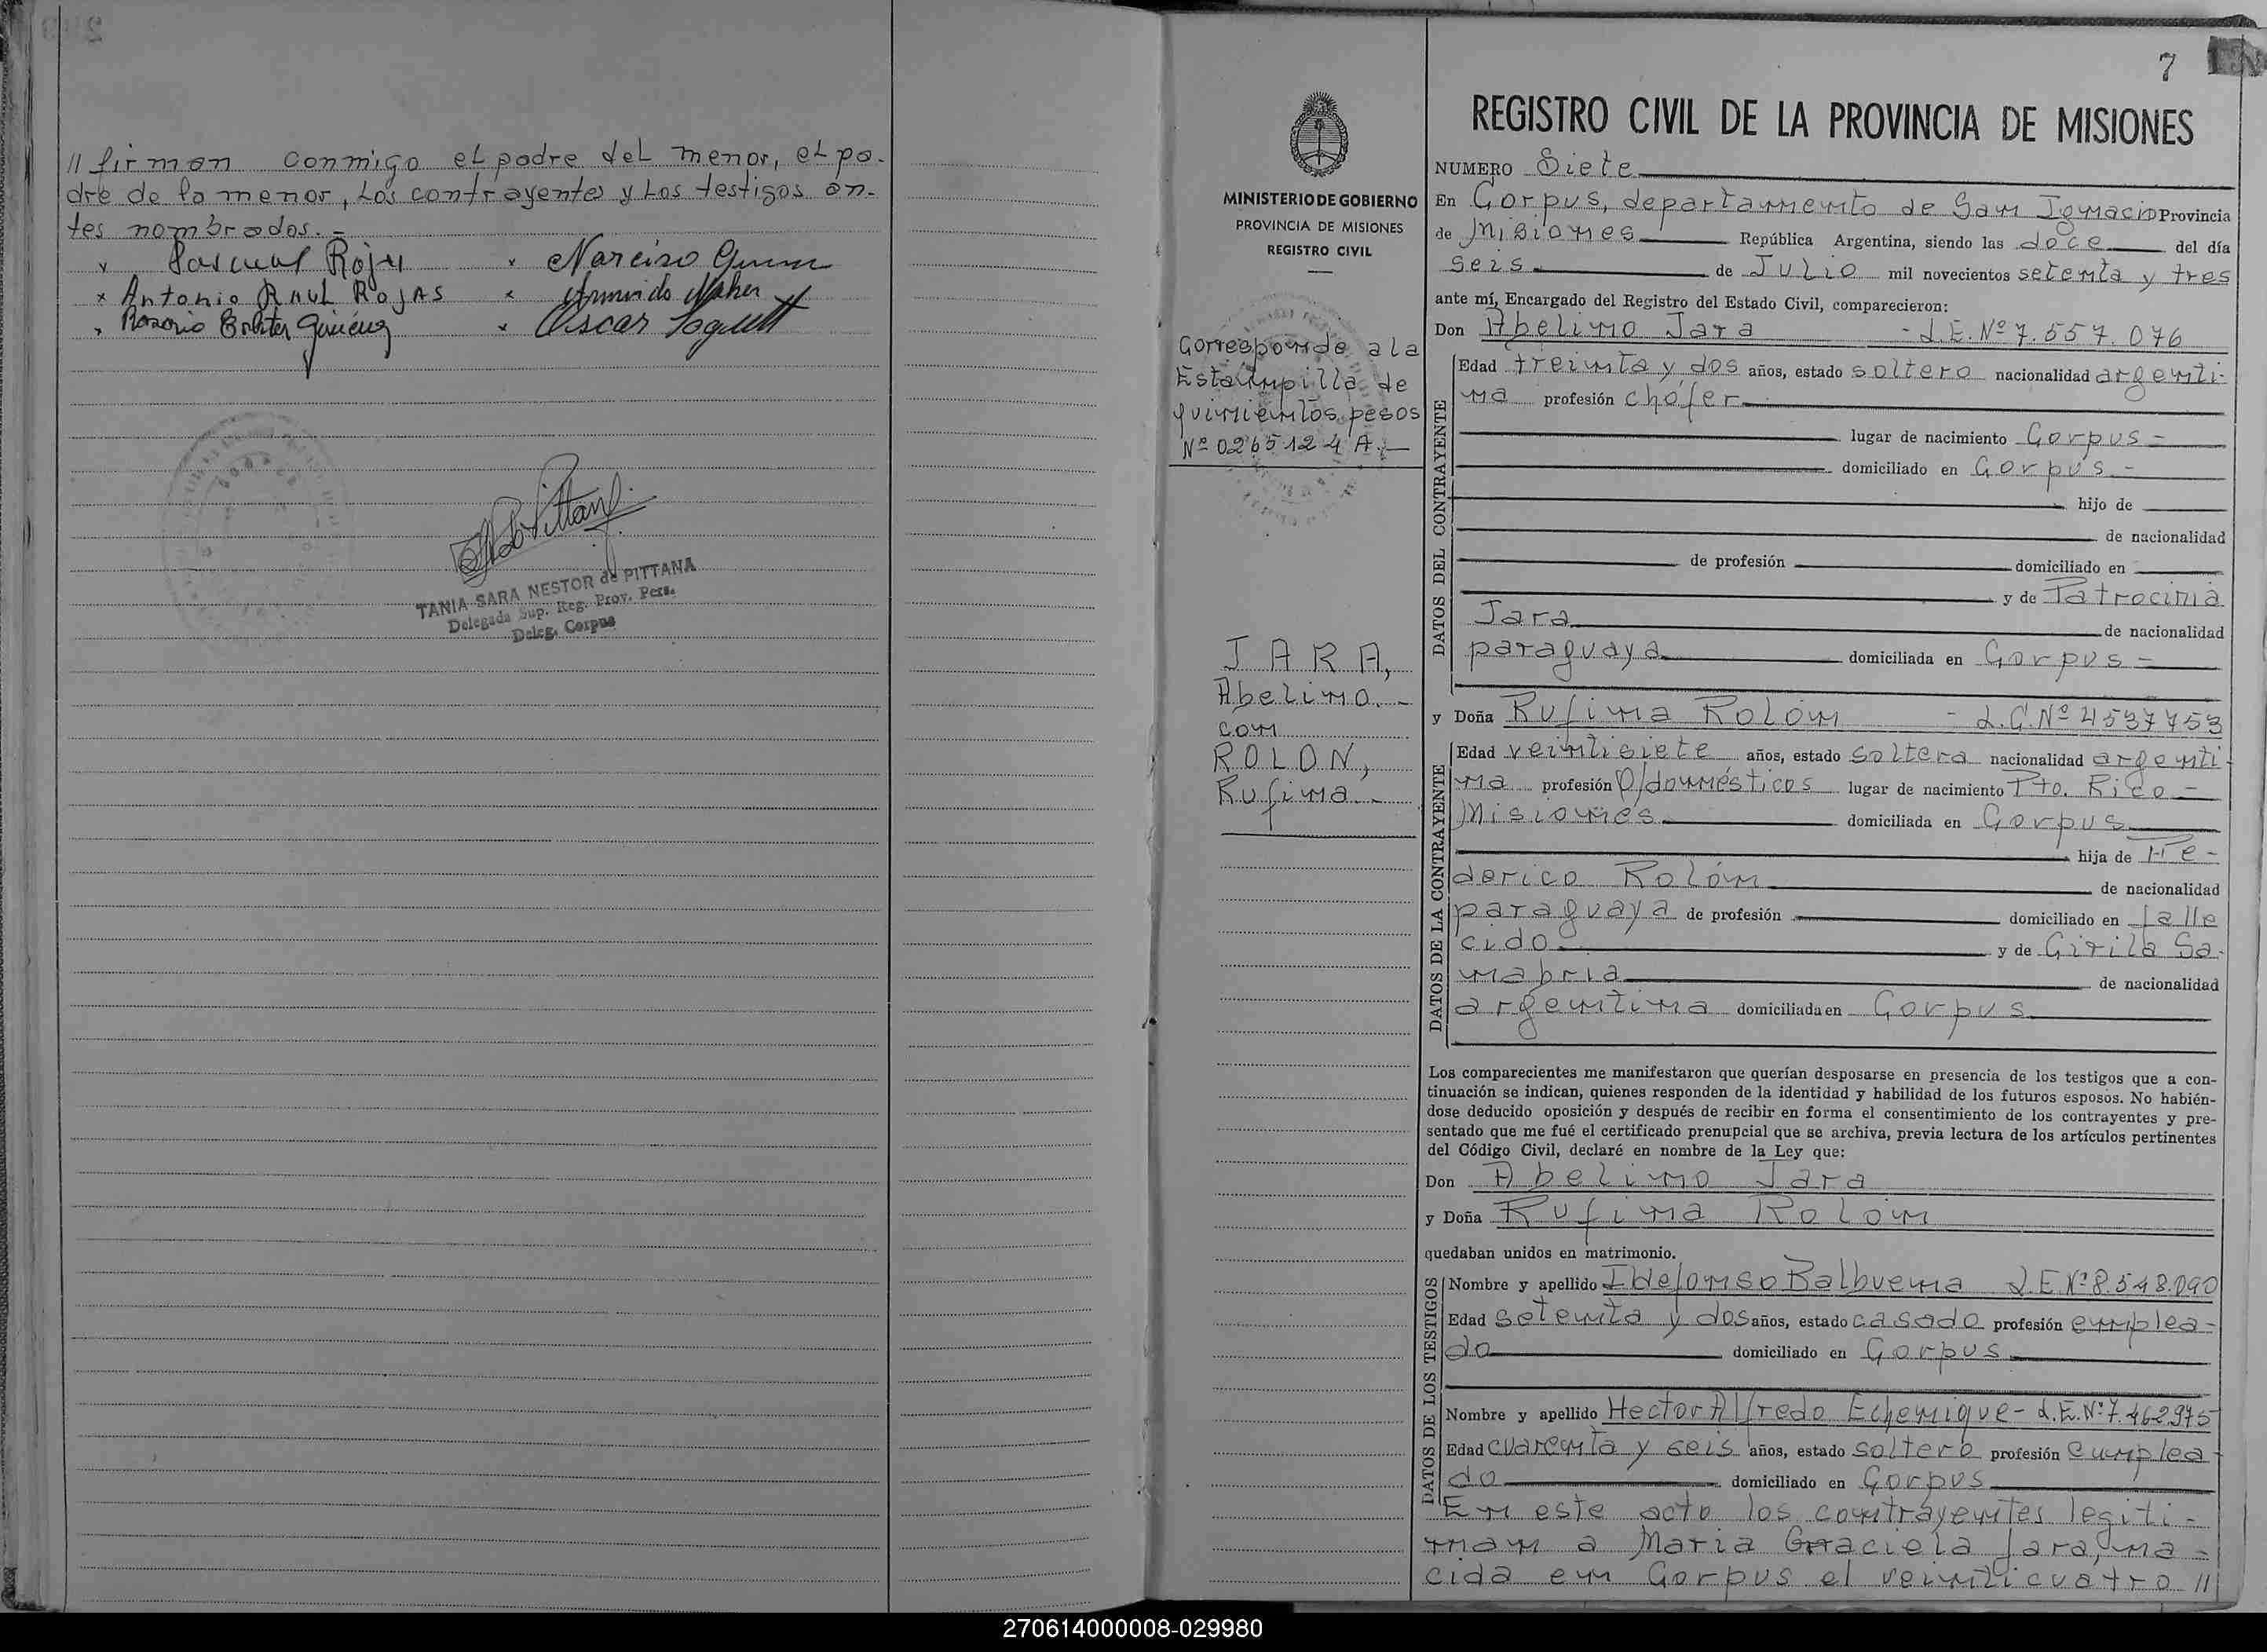 // firman conmigo el padre del menor, el pa-
dre de la menor, los contrayentes y los testigos an-
tes nombrados.-
x Pascual Rojas x Narciso
x Antonio Raul Rojas x Armindo
x Rosario Giménez x Oscar
TANIA SARA NESTOR de PITTANA
Delegada Sup. Reg. Prov. Pers.
Deleg. Corpus
MINISTERIO DE GOBIERNO
PROVINCIA DE MISIONES
REGISTRO CIVIL
Corresponde a la
Estampilla de
quinientos pesos
Nº 0265124 A.-
JARA,
Abelino.-
con
ROLON,
Rufina.-
7
REGISTRO CIVIL DE LA PROVINCIA DE MISIONES
NUMERO Siete
En Corpus, departamento de San Ignacio Provincia
de Misiones República Argentina, siendo las doce del día
seis de Julio mil novecientos setenta y tres
ante mí, Encargado del Registro del Estado Civil, comparecieron:
Don Abelino Jara - L.E. Nº 7.557.076
DATOS DEL CONTRAYENTE
Edad treinta y dos años, estado soltero nacionalidad argenti-
na profesión chófer
lugar de nacimiento Corpus-
domiciliado en Corpus-
hijo de
de nacionalidad
de profesión domiciliado en
y de Patrocinia
Jara de nacionalidad
paraguaya domiciliada en Corpus-
y Doña Rufina Rolón - L.C. Nº 4537753
DATOS DE LA CONTRAYENTE
Edad veintisiete años, estado soltera nacionalidad argenti-
na profesión Q/domésticos lugar de nacimiento Pto. Rico-
Misiones domiciliada en Corpus
hija de Fe-
derico Rolón de nacionalidad
paraguaya de profesión domiciliado en falle
cido y de Cirila Sa-
nabria de nacionalidad
argentina domiciliada en Corpus
Los comparecientes me manifestaron que querían desposarse en presencia de los testigos que a con-
tinuación se indican, quienes responden de la identidad y habilidad de los futuros esposos. No habién-
dose deducido oposición y después de recibir en forma el consentimiento de los contrayentes y pre-
sentado que me fué el certificado prenupcial que se archiva, previa lectura de los artículos pertinentes
del Código Civil, declaré en nombre de la Ley que:
Don Abelino Jara
y Doña Rufina Rolón
quedaban unidos en matrimonio.
DATOS DE LOS TESTIGOS
Nombre y apellido Ildefonso Balbuena L.E. Nº 8.548.090
Edad setenta y dos años, estado casado profesión emplea-
do domiciliado en Corpus
Nombre y apellido Hector Alfredo Echenique- L.E. Nº 7.462.975
Edad cuarenta y seis años, estado soltero profesión emplea-
do domiciliado en Corpus
En este acto los contrayentes legiti-
man a Maria Graciela Jara, na-
cida en Corpus el veinticuatro //
270614000008-029980